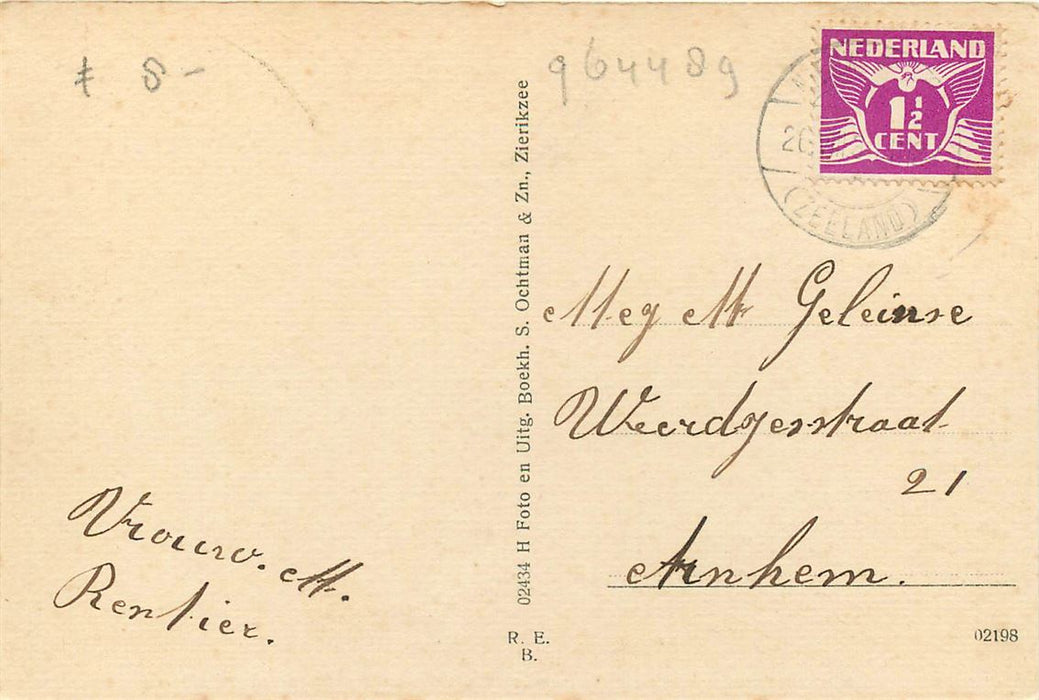 ƒ 8-
9644 89
NEDERLAND
1 1/2
CENT
20
(ZEELAND)
Mej M Geleinse
Weerdjesstraat
21
Arnhem.
Vrouw. M.
Rentier.
02434 H Foto en Uitg. Boekh. S. Ochtman & Zn., Zierikzee
R. E.
B.
02198